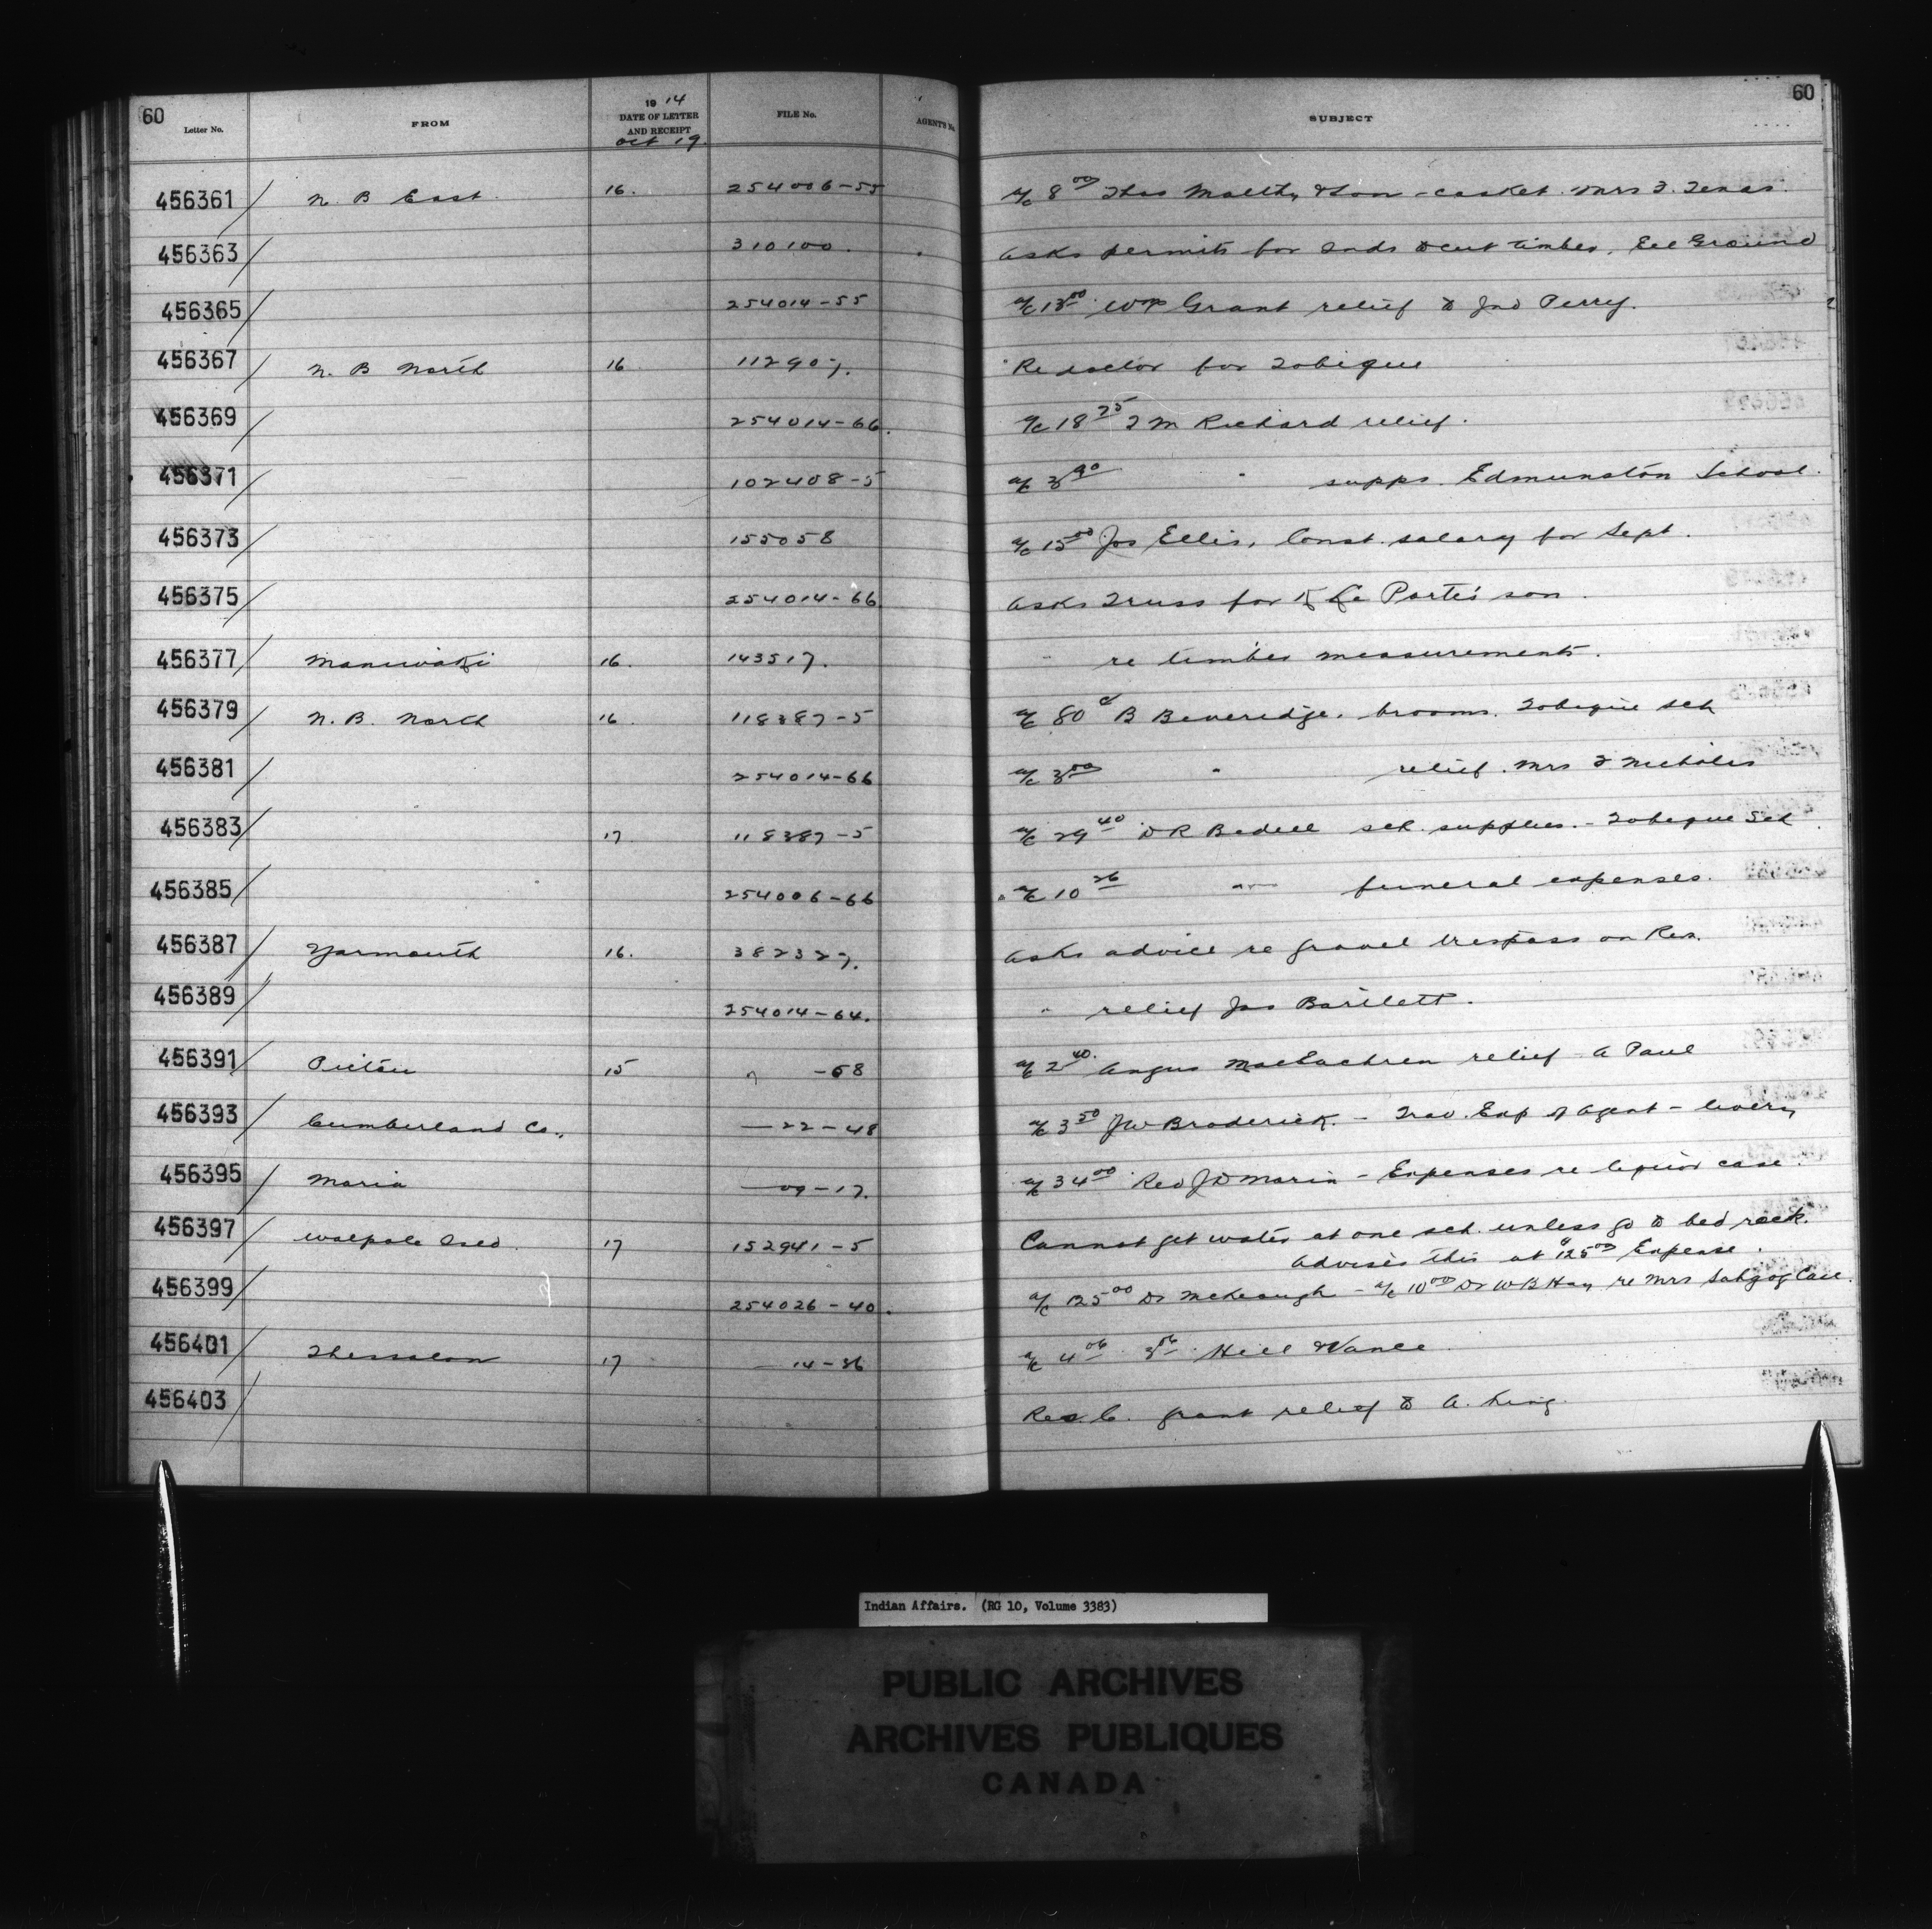 60 60
Letter No. FROM 1914 DATE OF LETTER AND RECEIPT FILE No. AGENT'S No. SUBJECT
Oct 19.
456361 N. B East 16. 254006-55 a/c 8 00 Thos Maltby & Son - casket Mrs
456363 310100. Asks permits for Inds to cut timber, Eel Ground
456365 254014-55 a/c 13 00 Wm Grant relief to Jno Perry.
456367 N. B North 16 112907. Re doctor for Tobique
456369 254014-66. a/c 18 25 Richard relief.
456371 102408-5 a/c 3 90 " supps. Edmunston School.
456373 155058 a/c 15 00 Jos Ellis, Const. salary for Sept.
456375 254014-66 Asks Truss for La Porte's son.
456377 Maniwaki 16. 143517. " re timber measurements.
456379 N. B. North 16 118387-5 a/c 80 c B Beveridge, brooms. Tobique sch
456381 254014-66 a/c 3 00 " relief. Mrs Nicholas
456383 17 118387-5 a/c 29 40 D R Bedell sch. supplies. - Tobique Sch
456385 254006-66 a/c 10 26 " funeral expenses.
456387 Yarmouth 16. 382327. Asks advice re gravel trespass on Res.
456389 254014-64. " relief Jas Bartlett.
456391 Pictou 15 " -58 a/c 2 40. Angus MacEachren relief - A Paul
456393 Cumberland Co., — 22-48 a/c 3 50 JW Broderick. - Trav. Exp of Agent - livery
456395 Maria — 09-17. a/c 34 00 Rev J D Morin - Expenses re liquor case.
456397 Walpole Isld. 17 152941-5 Cannot get water at one sch. unless go to bed rock.
Advises this at $125 00 Expense.
456399 254026-40. a/c 125 00 Dr McKeough - a/c 10 00 Dr W B Hay re Mrs Case.
456401 Thessalon 17 — 14-36 a/c 4 06 3 56 Hill & Vance
456403 Rec. grant relief to A. King.
Indian Affairs. (RG 10, Volume 3383)
PUBLIC ARCHIVES
ARCHIVES PUBLIQUES
CANADA